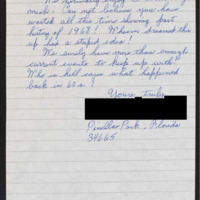 much. Can not believe you have
wasted all this time showing past
history of 1968! Whoever dreamed this
up had a stupid idea!
We surely have more than enough
current events to keep up with!
Who in hell cares what happened
back in 60s?
Yours truly
Pinellas Park, Florida
34665